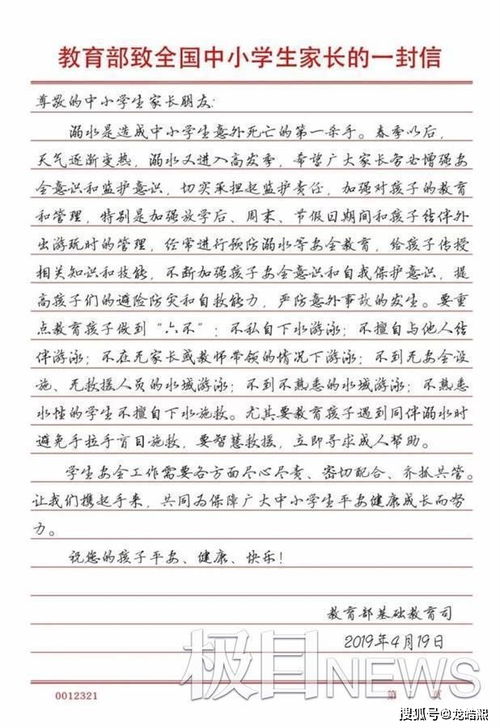 教育部致全国中小学生家长的一封信
尊敬的中小学生家长朋友:
溺水是造成中小学生意外死亡的第一杀手。春季以后,
天气逐渐变热,溺水又进入高发季,希望广大家长务必增强安
全意识和监护意识,切实承担起监护责任,加强对孩子的教育
和管理,特别是加强放学后、周末、节假日期间和孩子结伴外
出游玩时的管理,经常进行预防溺水等安全教育,给孩子传授
相关知识和技能,不断加强孩子安全意识和自我保护意识,提
高孩子们的避险防灾和自救能力,严防意外事故的发生。要重
点教育孩子做到“六不”:不私自下水游泳;不擅自与他人结
伴游泳;不在无家长或教师带领的情况下游泳;不到无安全设
施、无救援人员的水域游泳;不到不熟悉的水域游泳;不熟悉
水性的学生不擅自下水施救。尤其要教育孩子遇到同伴溺水时
避免手拉手盲目施救,要智慧救援,立即寻求成人帮助。
学生安全工作需要各方面尽心尽责、密切配合、齐抓共管。
让我们携起手来,共同为保障广大中小学生平安健康成长而努
力。
祝您的孩子平安、健康、快乐!
教育部基础教育司
2019年4月19日
极目NEWS
0012321
第 1 页
搜狐号@龙皓熙